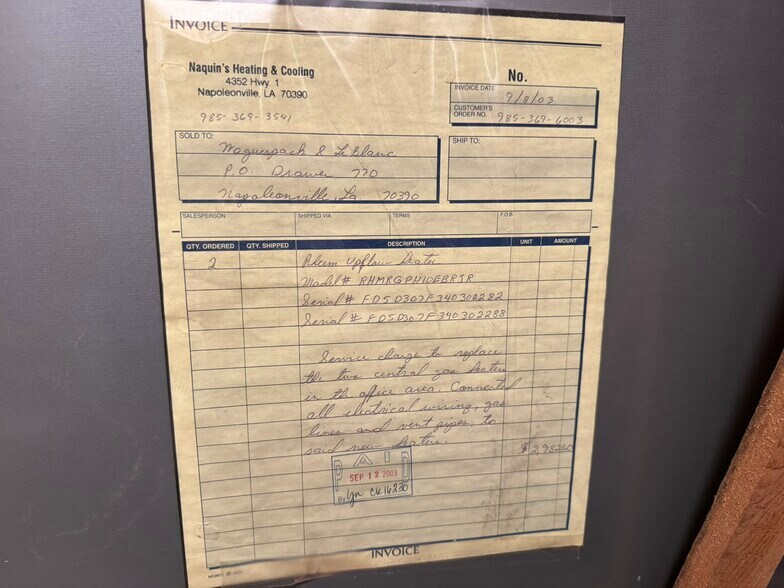 INVOICE
Naquin's Heating & Cooling
4352 Hwy. 1
Napoleonville, LA 70390
985-369-3541
No.
INVOICE DATE 9/8/03
CUSTOMER'S ORDER NO. 985-369-6003
SOLD TO: Waguespack & LeBlanc
P.O. Drawer 770
Napoleonville, La. 70390
SHIP TO:
SALESPERSON SHIPPED VIA TERMS F.O.B.
QTY. ORDERED QTY. SHIPPED DESCRIPTION UNIT AMOUNT
2 Rheem Upflow Heater
Model # RHMRGPH10EBRJR
Serial # FD5D307F340302282
Serial # FD5D307F340302288
Service charge to replace
the two central gas heaters
in the office area. Connected
all electrical wiring, gas
lines and vent pipes to
said new heaters. $
PAID
SEP 12 2003
By Lyn CK 16230
INVOICE